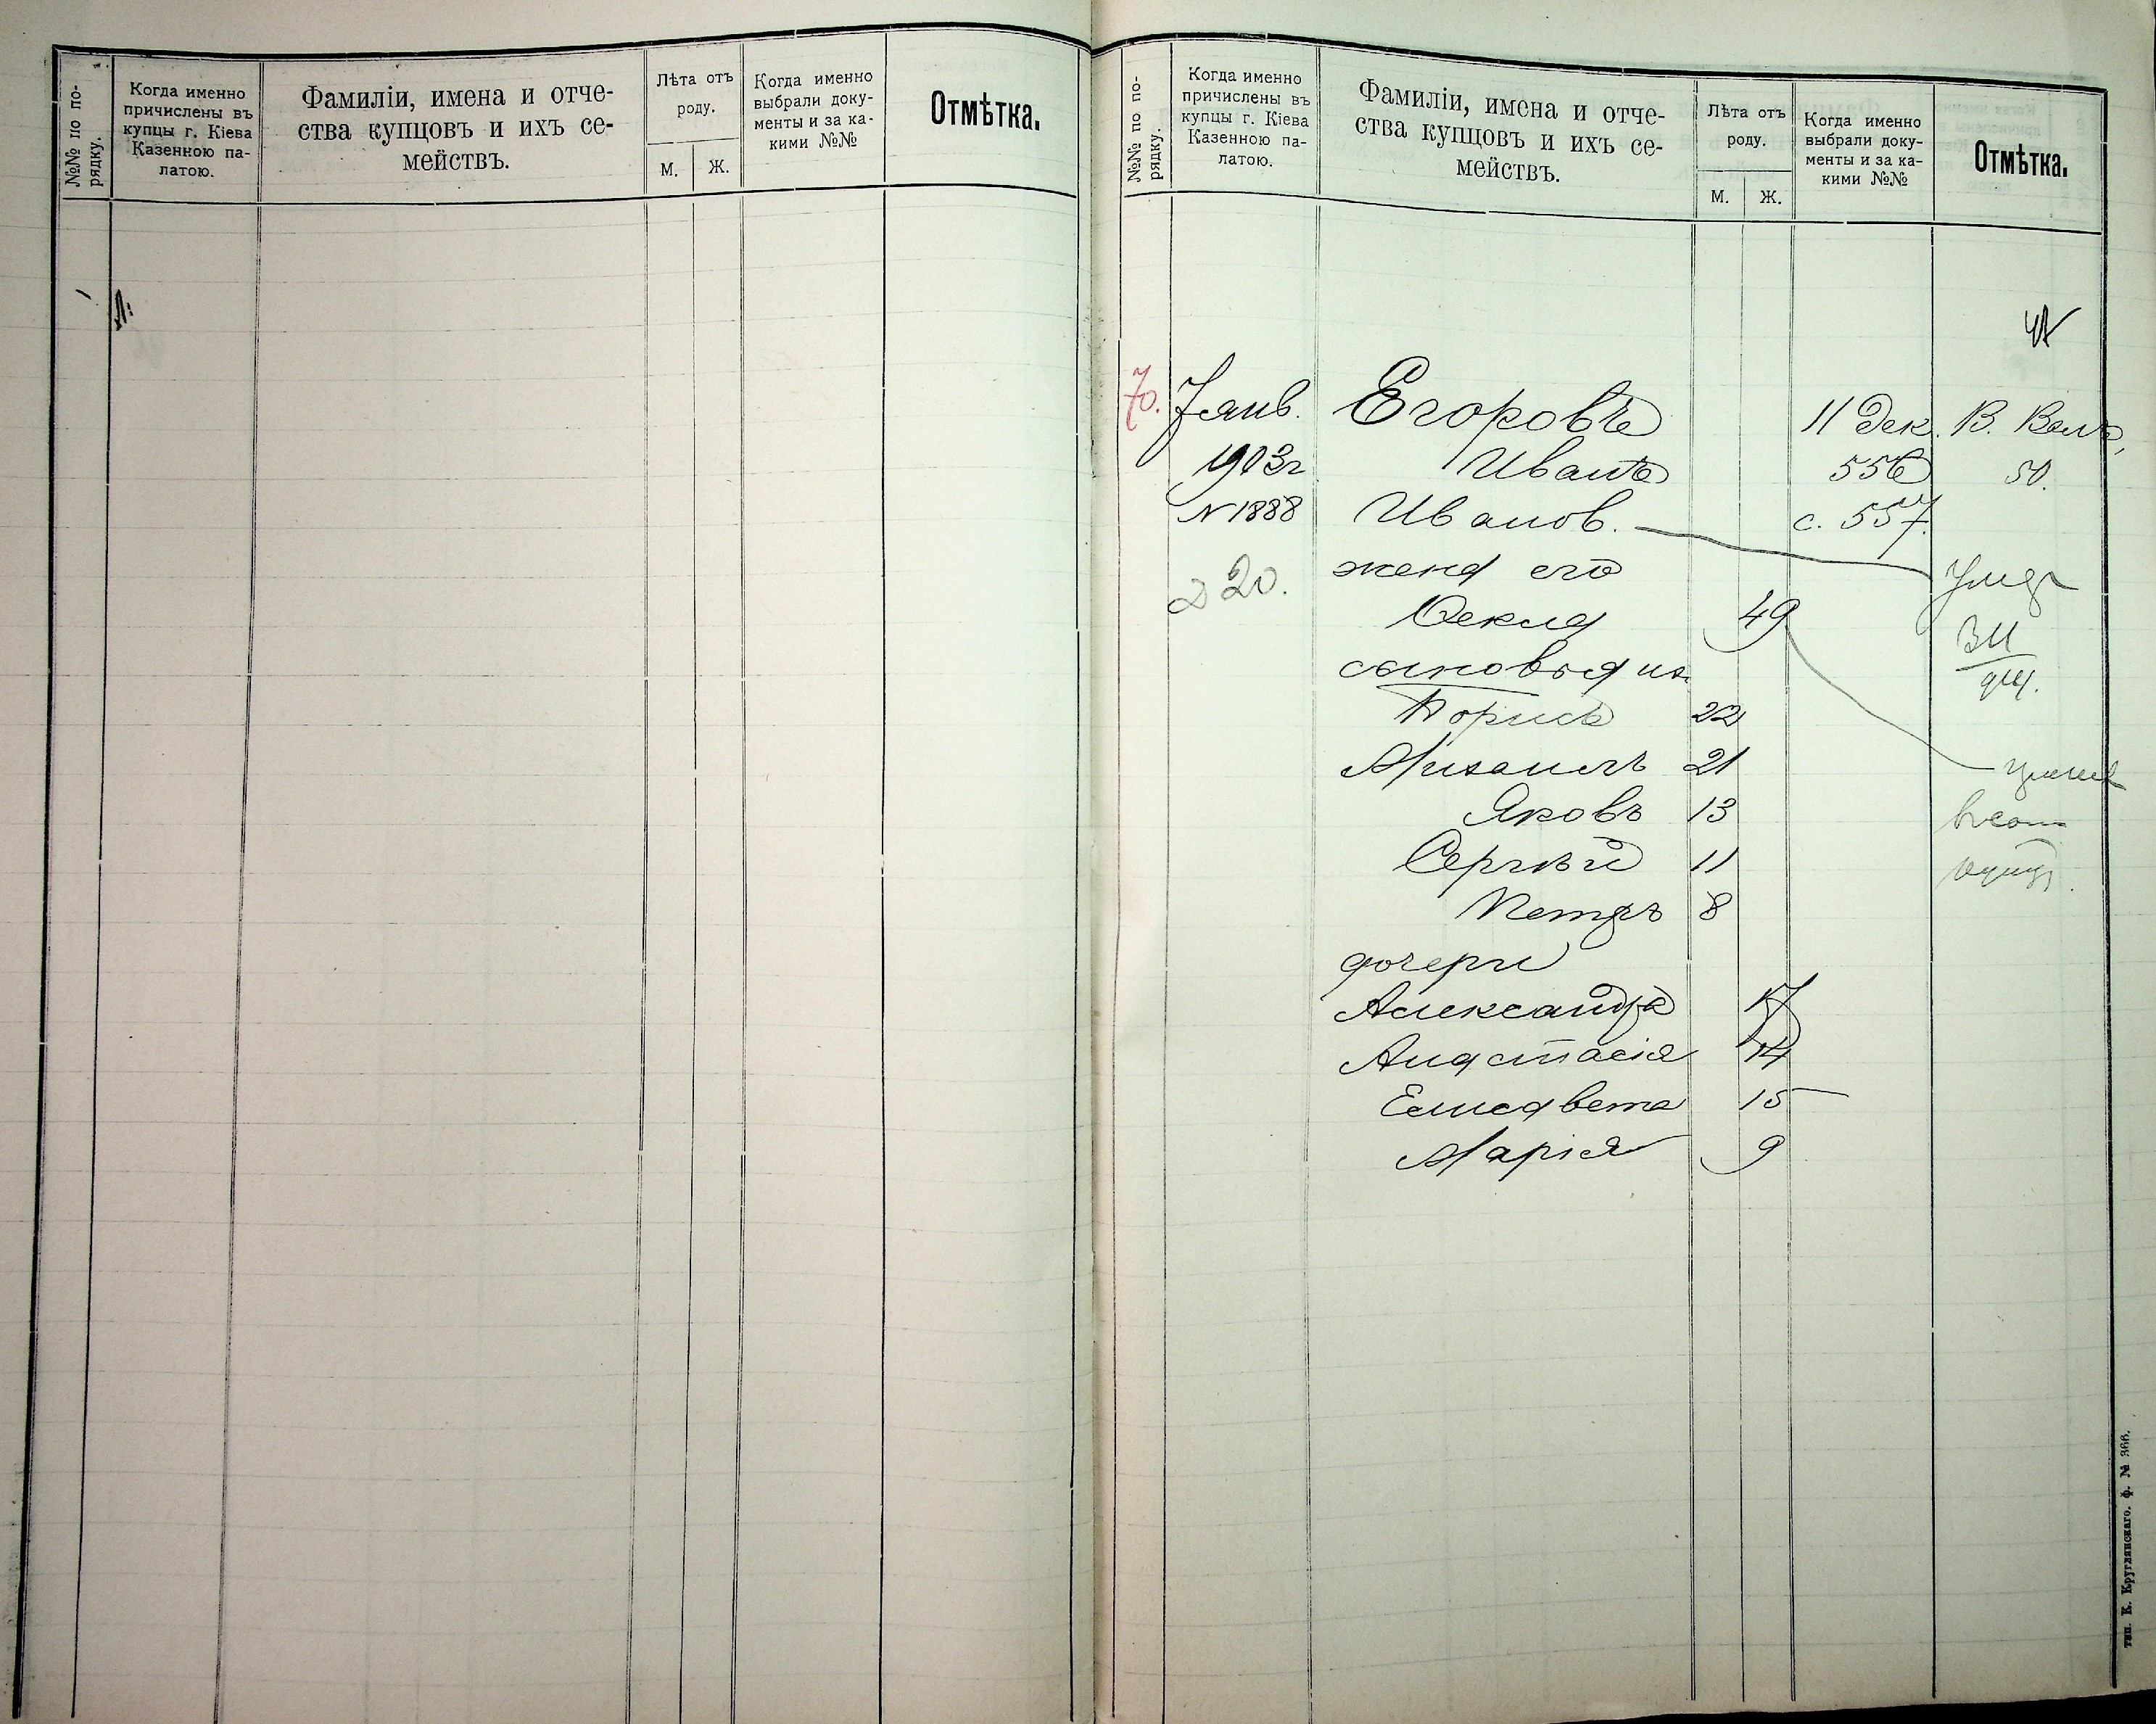 №№ по по-
рядку.
Когда именно
причислены въ
купцы г. Кіева
Казенною па-
латою.
Фамиліи, имена и отче-
ства купцовъ и ихъ се-
мействъ.
Лѣта отъ
роду.
М. Ж.
Когда именно
выбрали доку-
менты и за ка-
кими №№
Отмѣтка.
№№ по по-
рядку.
Когда именно
причислены въ
купцы г. Кіева
Казенною па-
латою.
Фамиліи, имена и отче-
ства купцовъ и ихъ се-
мействъ.
Лѣта отъ
роду.
М. Ж.
Когда именно
выбрали доку-
менты и за ка-
кими №№
Отмѣтка.
70. Янв. Егоровъ 11 Дек. В.
1903г Иванъ 556 50.
№ 1888 Иванов. с. 557.
жена его
20.
Фекла 49
сыновья их
Борисъ 22
Михаилъ 21
Яковъ 13
Сергѣй 11
Петръ 8
дочери
Александра 17
Анастасія 14
Елисавета 15
Марія 9
тип. К. Круглянскаго. ф. № 366.